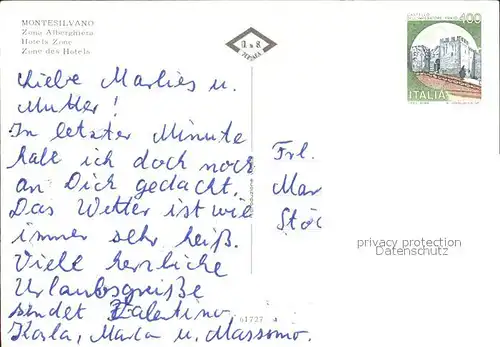 MONTESILVANO
Zona Alberghiera
Hotels Zone
Zone des Hotels
400
ITALIA
Liebe Marlies u.
Mutter!
In letzter Minute
hab ich doch noch
an Dich gedacht.
Das Wetter ist wie
immer sehr heiß.
Viele herzliche
Urlaubsgrüße
sendet Valentino
Karla, Marla u. Massomo.
Frl.
Mar
Stöc
privacy protection
Datenschutz
61727